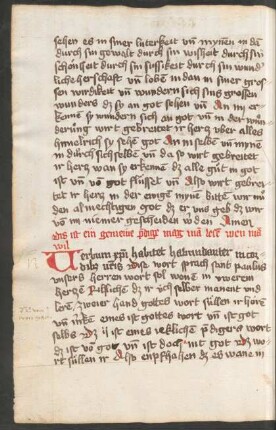 sehen es in siner luterkeit vn̄ mynen in dz
durch sin gewalt durch sin wisheit durch sin
schönheit durch sin süssikeit durch sin wund
liche herschaft vn̄ loben in dan in siner gros
sen wirdikeit vn̄ wundern sich sins grossen
wunders dz sy an got sehen vn̄ An mÿ er
kenne sy wundern sich an got vn̄ in der wūn
derūng wirt gebreitet ir herz vber alles
himelrich so sehe got An in selben vn̄ myne
in durch sich selbe vn̄ da so wirt gebreitet
ir herz wan sy erkenne dz alle gůt in got
ist vn̄ vō got flüsset vn̄ Also wirt gebrei
tet ir herz in der ewige myne bitte wir nu
den almechtigen got dz er vns geb dz wir
vō im niemer gescheiden wden Amen
das ist ein gemeine pdige mag mā lese wen mā
wil
Verbum xp̄i habitet habundanter in cor
dibz vr̄is Dise wort sprach sant paulus
vnsers herren wort sol wone in uweren
herze
lon zweier hand gottes wort süllen ir höre
vn̄ eines ist gottes wort vn̄ ist got
selbs dz ist eines ieklichen p̄digers wort
dz ist vō got vn̄ ist doch nit got dz wort
süllen ir Also enpfhahen dz es wone in